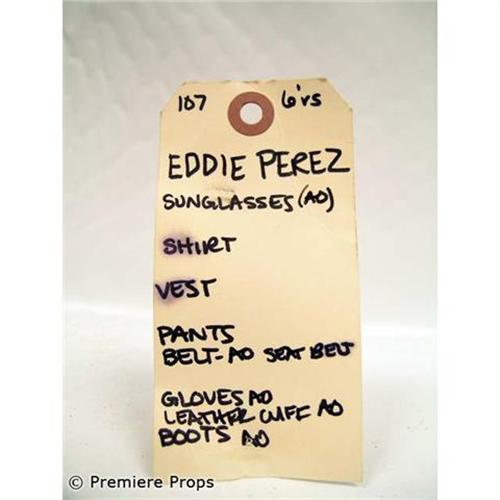 107 6'rs
EDDIE PEREZ
SUNGLASSES (AO)
SHIRT
VEST
PANTS
BELT-AO SEAT BELT
GLOVES AO
LEATHER CUFF AO
BOOTS AO
© Premiere Props